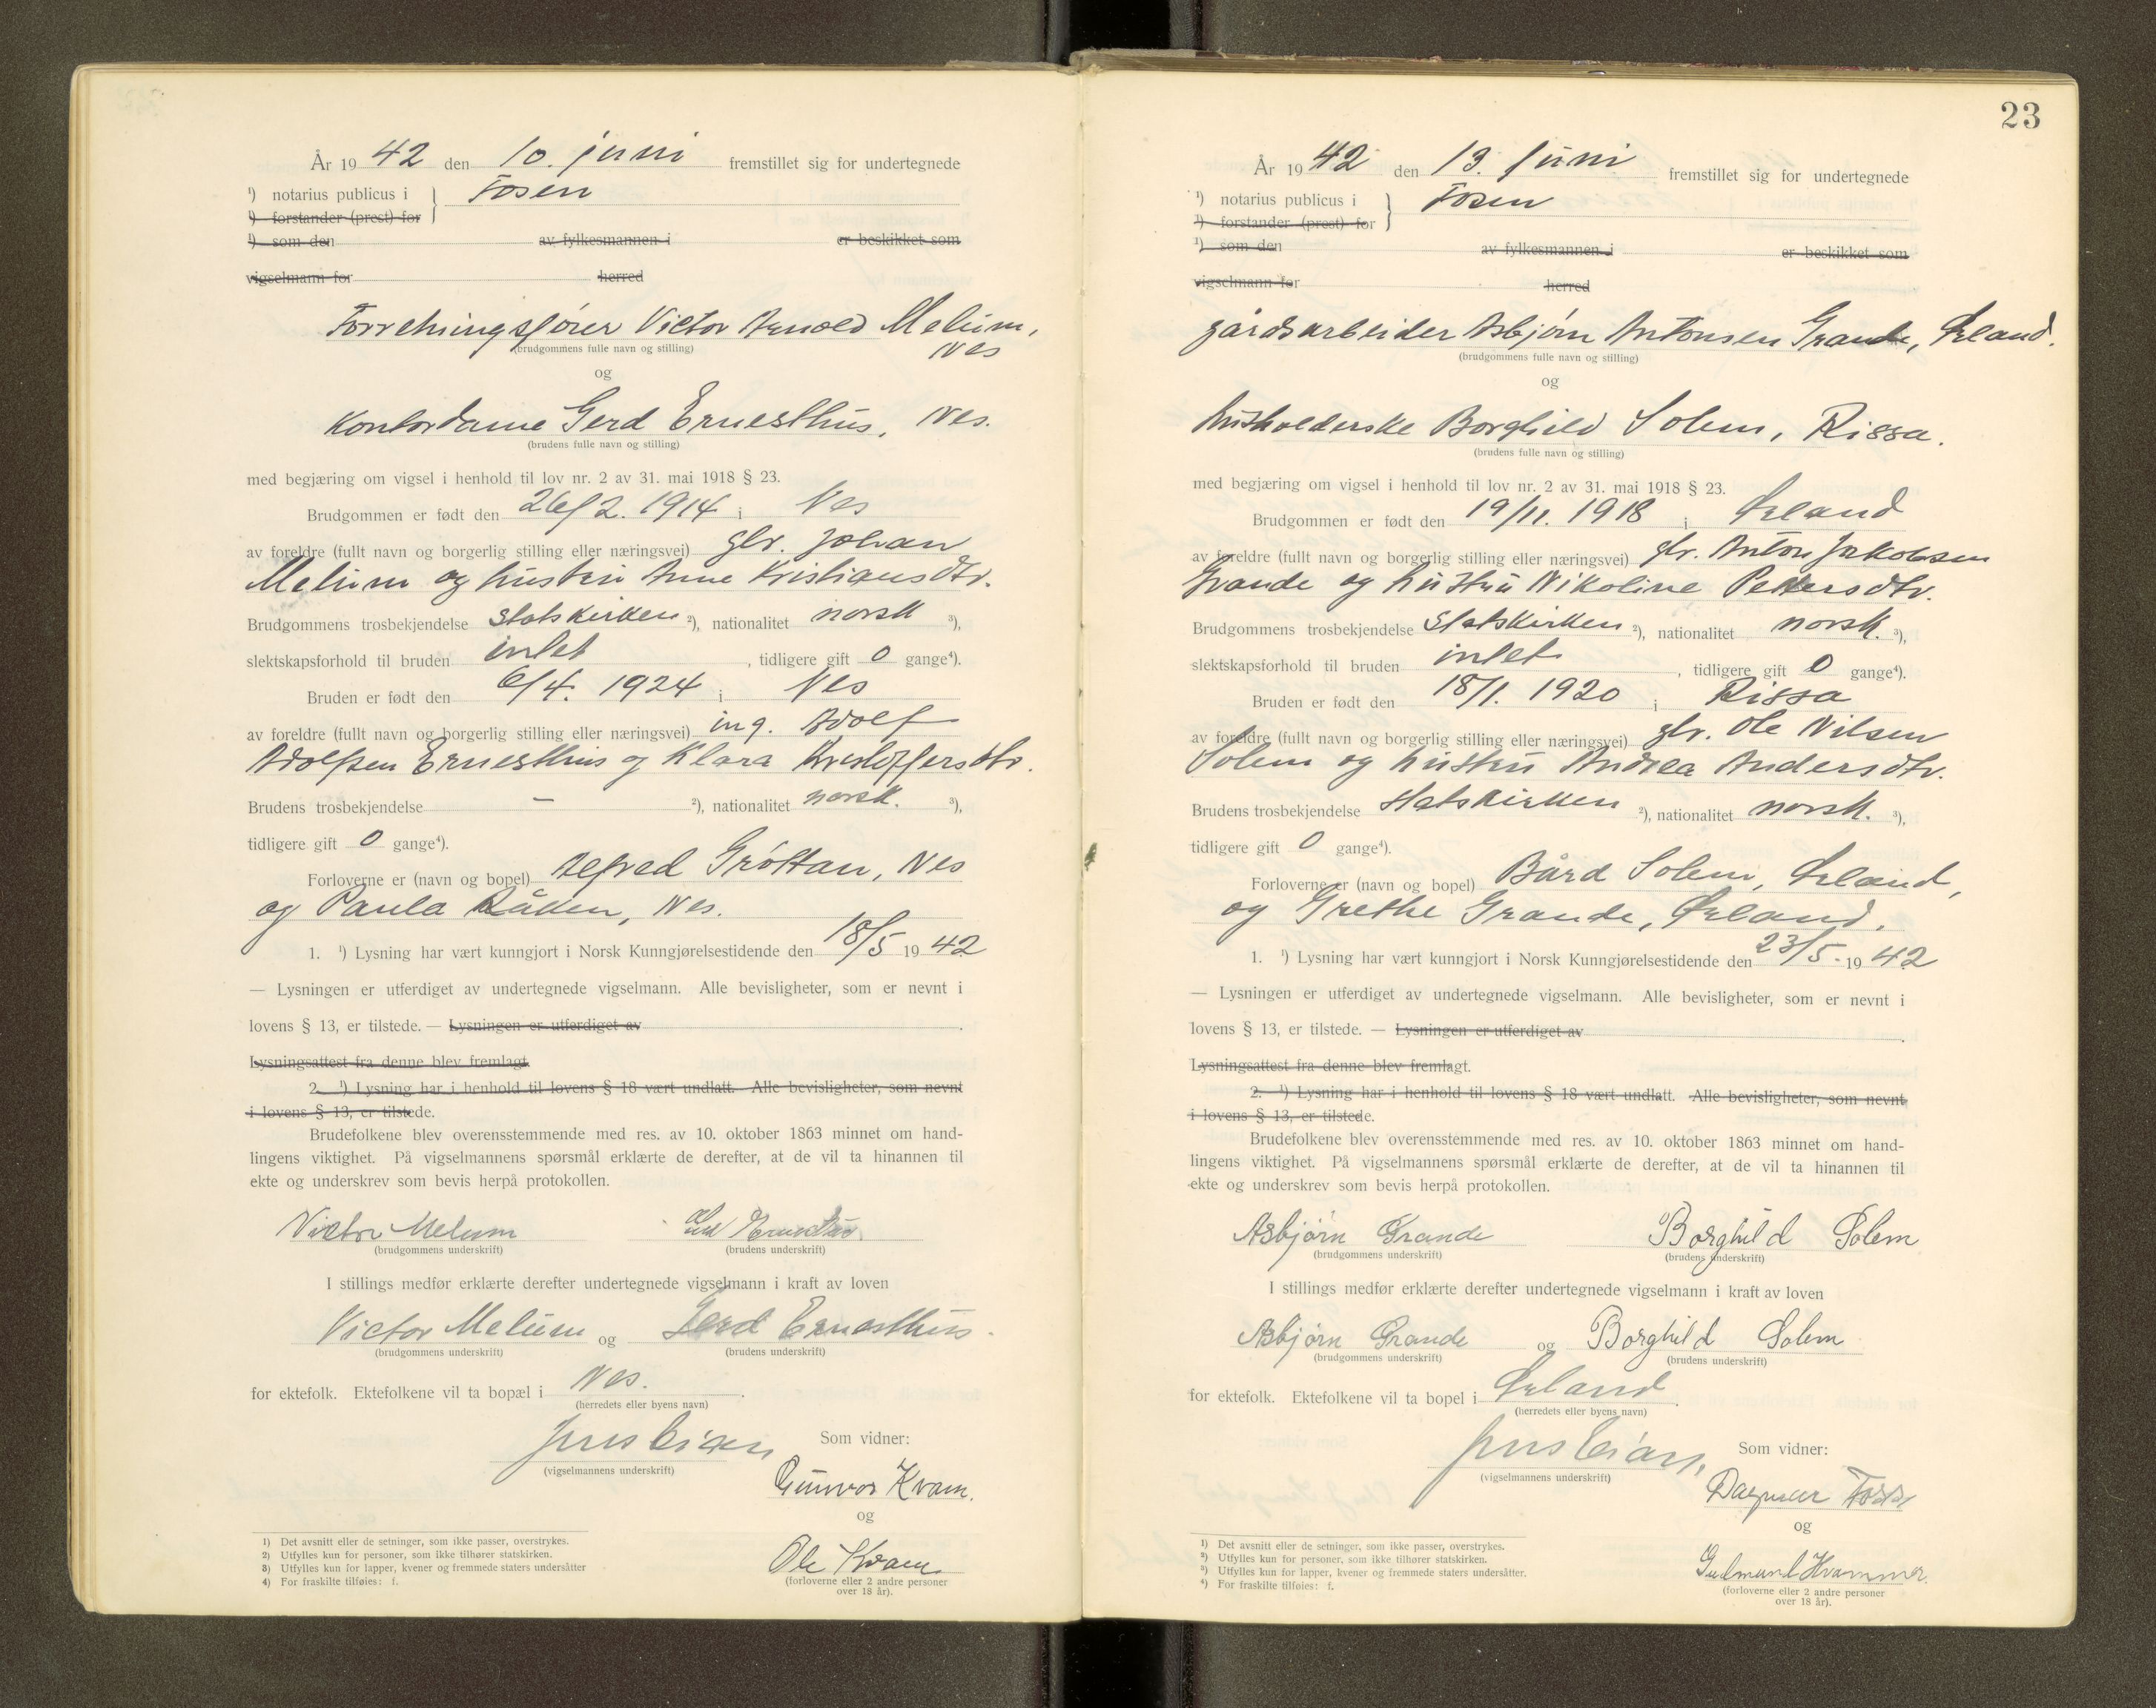 År 19 42 den 10. juni fremstillet sig for undertegnede
¹) notarius publicus i } Fosen
¹) forstander (prest) for
¹) som den av fylkesmannen i er beskikket som
vigselmann for herred
Forretningsfører Victor Arnold Melum,
Nes
(brudgommens fulle navn og stilling)
og
Kontordame Gerd Ernesthus, Nes.
(brudens fulle navn og stilling)
med begjæring om vigsel i henhold til lov nr. 2 av 31. mai 1918 § 23.
Brudgommen er født den 26/2. 1914 i Nes
av foreldre (fullt navn og borgerlig stilling eller næringsvei) gbr. Johan
Melum og hustru Anne Kristiansdtr.
Brudgommens trosbekjendelse Statskirken ²), nationalitet norsk ³),
slektskapsforhold til bruden intet , tidligere gift 0 gange⁴).
Bruden er født den 6/4. 1924 i Nes
av foreldre (fullt navn og borgerlig stilling eller næringsvei) ing. Adolf
Adolfsen Ernesthus og Klara Kristoffersdtr.
Brudens trosbekjendelse - ²), nationalitet norsk. ³),
tidligere gift 0 gange⁴).
Forloverne er (navn og bopel) Alfred Grøttan, Nes
og Paula Råken, Nes.
1. ¹) Lysning har vært kunngjort i Norsk Kunngjørelsestidende den 18/5 19 42
— Lysningen er utferdiget av undertegnede vigselmann. Alle bevisligheter, som er nevnt i
lovens § 13, er tilstede. — Lysningen er utferdiget av .
Lysningsattest fra denne blev fremlagt.
2. ¹) Lysning har i henhold til lovens § 18 vært undlatt. Alle bevisligheter, som nevnt
i lovens § 13, er tilstede.
Brudefolkene blev overensstemmende med res. av 10. oktober 1863 minnet om hand-
lingens viktighet. På vigselmannens spørsmål erklærte de derefter, at de vil ta hinannen til
ekte og underskrev som bevis herpå protokollen.
Victor Melum Gerd Ernesthus
(brudgommens underskrift) (brudens underskrift)
I stillings medfør erklærte derefter undertegnede vigselmann i kraft av loven
Victor Melum og Gerd Ernesthus.
(brudgommens underskrift) (brudens underskrift)
for ektefolk. Ektefolkene vil ta bopæl i Nes. .
(herredets eller byens navn)
Som vidner:
(vigselmannens underskrift)
Gunvor Kvam.
og
Ole Kvam
(forloverne eller 2 andre personer
over 18 år).
1) Det avsnitt eller de setninger, som ikke passer, overstrykes.
2) Utfylles kun for personer, som ikke tilhører statskirken.
3) Utfylles kun for lapper, kvener og fremmede staters undersåtter
4) For fraskilte tilføies: f.
23
År 19 42 den 13. juni fremstillet sig for undertegnede
¹) notarius publicus i } Fosen
¹) forstander (prest) for
¹) som den av fylkesmannen i er beskikket som
vigselmann for herred
gårdsarbeider Asbjørn Antonsen Grande, Ørland.
(brudgommens fulle navn og stilling)
og
husholderske Borghild Solem, Rissa.
(brudens fulle navn og stilling)
med begjæring om vigsel i henhold til lov nr. 2 av 31. mai 1918 § 23.
Brudgommen er født den 19/11. 1918 i Ørland
av foreldre (fullt navn og borgerlig stilling eller næringsvei) gbr. Anton Jakobsen
Grande og hustru Nikoline Pettersdtr.
Brudgommens trosbekjendelse Statskirken ²), nationalitet norsk. ³),
slektskapsforhold til bruden intet , tidligere gift 0 gange⁴).
Bruden er født den 18/1. 1920 i Rissa
av foreldre (fullt navn og borgerlig stilling eller næringsvei) gbr. Ole Nilsen
Solem og hustru Andrea Andersdtr.
Brudens trosbekjendelse Statskirken ²), nationalitet norsk. ³),
tidligere gift 0 gange⁴).
Forloverne er (navn og bopel) Bård Solem, Ørland,
og Grethe Grande, Ørland.
1. ¹) Lysning har vært kunngjort i Norsk Kunngjørelsestidende den 23/5. 19 42
— Lysningen er utferdiget av undertegnede vigselmann. Alle bevisligheter, som er nevnt i
lovens § 13, er tilstede. — Lysningen er utferdiget av .
Lysningsattest fra denne blev fremlagt.
2. ¹) Lysning har i henhold til lovens § 18 vært undlatt. Alle bevisligheter, som nevnt
i lovens § 13, er tilstede.
Brudefolkene blev overensstemmende med res. av 10. oktober 1863 minnet om hand-
lingens viktighet. På vigselmannens spørsmål erklærte de derefter, at de vil ta hinannen til
ekte og underskrev som bevis herpå protokollen.
Asbjørn Grande Borghild Solem
(brudgommens underskrift) (brudens underskrift)
I stillings medfør erklærte derefter undertegnede vigselmann i kraft av loven
Asbjørn Grande og Borghild Solem
(brudgommens underskrift) (brudens underskrift)
for ektefolk. Ektefolkene vil ta bopel i Ørland .
(herredets eller byens navn)
Som vidner:
(vigselmannens underskrift)
Dagmar Foss
og
Gudmund Hrammer.
(forloverne eller 2 andre personer
over 18 år).
¹) Det avsnitt eller de setninger, som ikke passer, overstrykes.
²) Utfylles kun for personer, som ikke tilhører statskirken.
³) Utfylles kun for lapper, kvener og fremmede staters undersåtter.
⁴) For fraskilte tilføies: f.